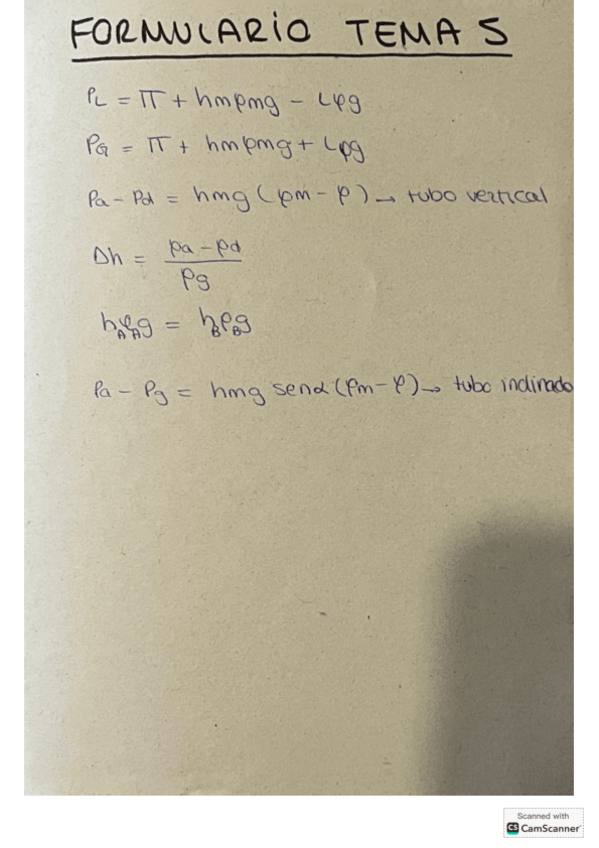 FORMULARIO TEMA 5
PL = π + hmρmg - Lρg
PG = π + hmρmg + Lρg
Pa - Pd = hmg (ρm - ρ) → tubo vertical
Δh = (pa - pd) / ρg
hAρAg = hBρBg
Pa - Pg = hmg senα (ρm - ρ) → tubo inclinado
Scanned with
CS CamScanner